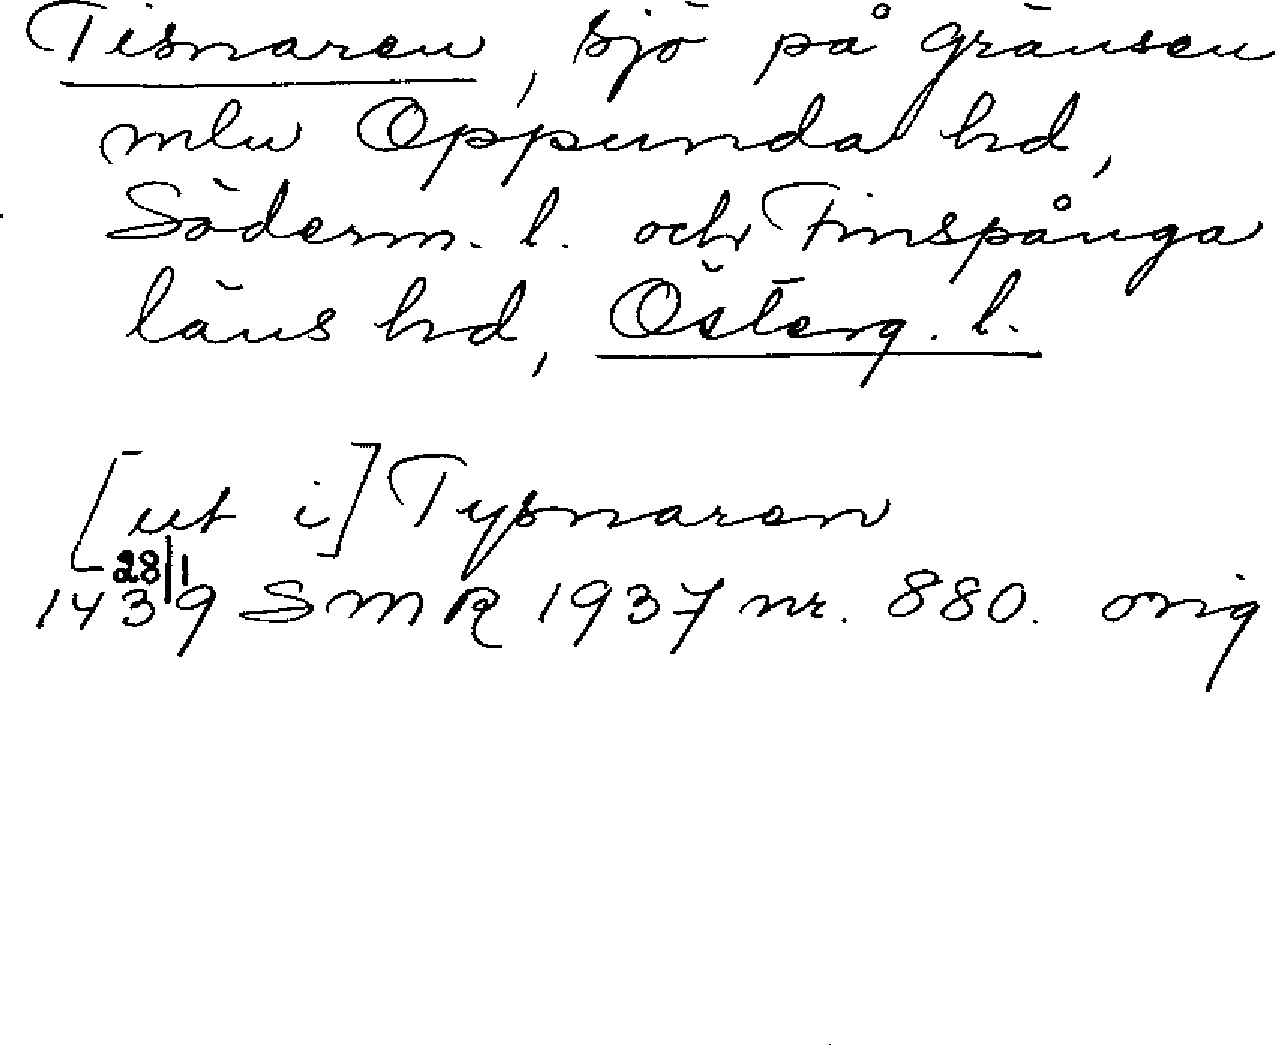 Tisnaren, sjö på gränsen
mlw Oppunda hd,
Söderm. l. och Finspånga
läns hd, Österg. l.
[ut i] Tysnaren
28/1
1439 SMR 1937 nr. 880. orig